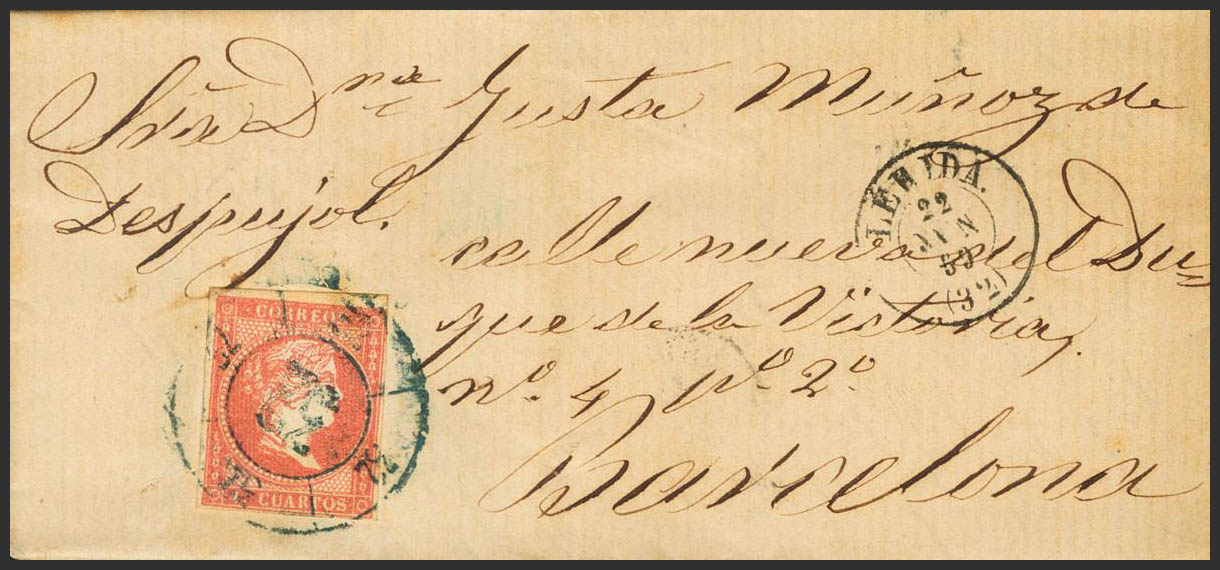 Sra. Dña. Justa Muñoz de
Despujol.
calle nueva del Du-
que de la Victoria,
nº. 4 pº. 2º
Barcelona
LERIDA.
22
JUN
59
(32)
CORREOS
CUARTOS